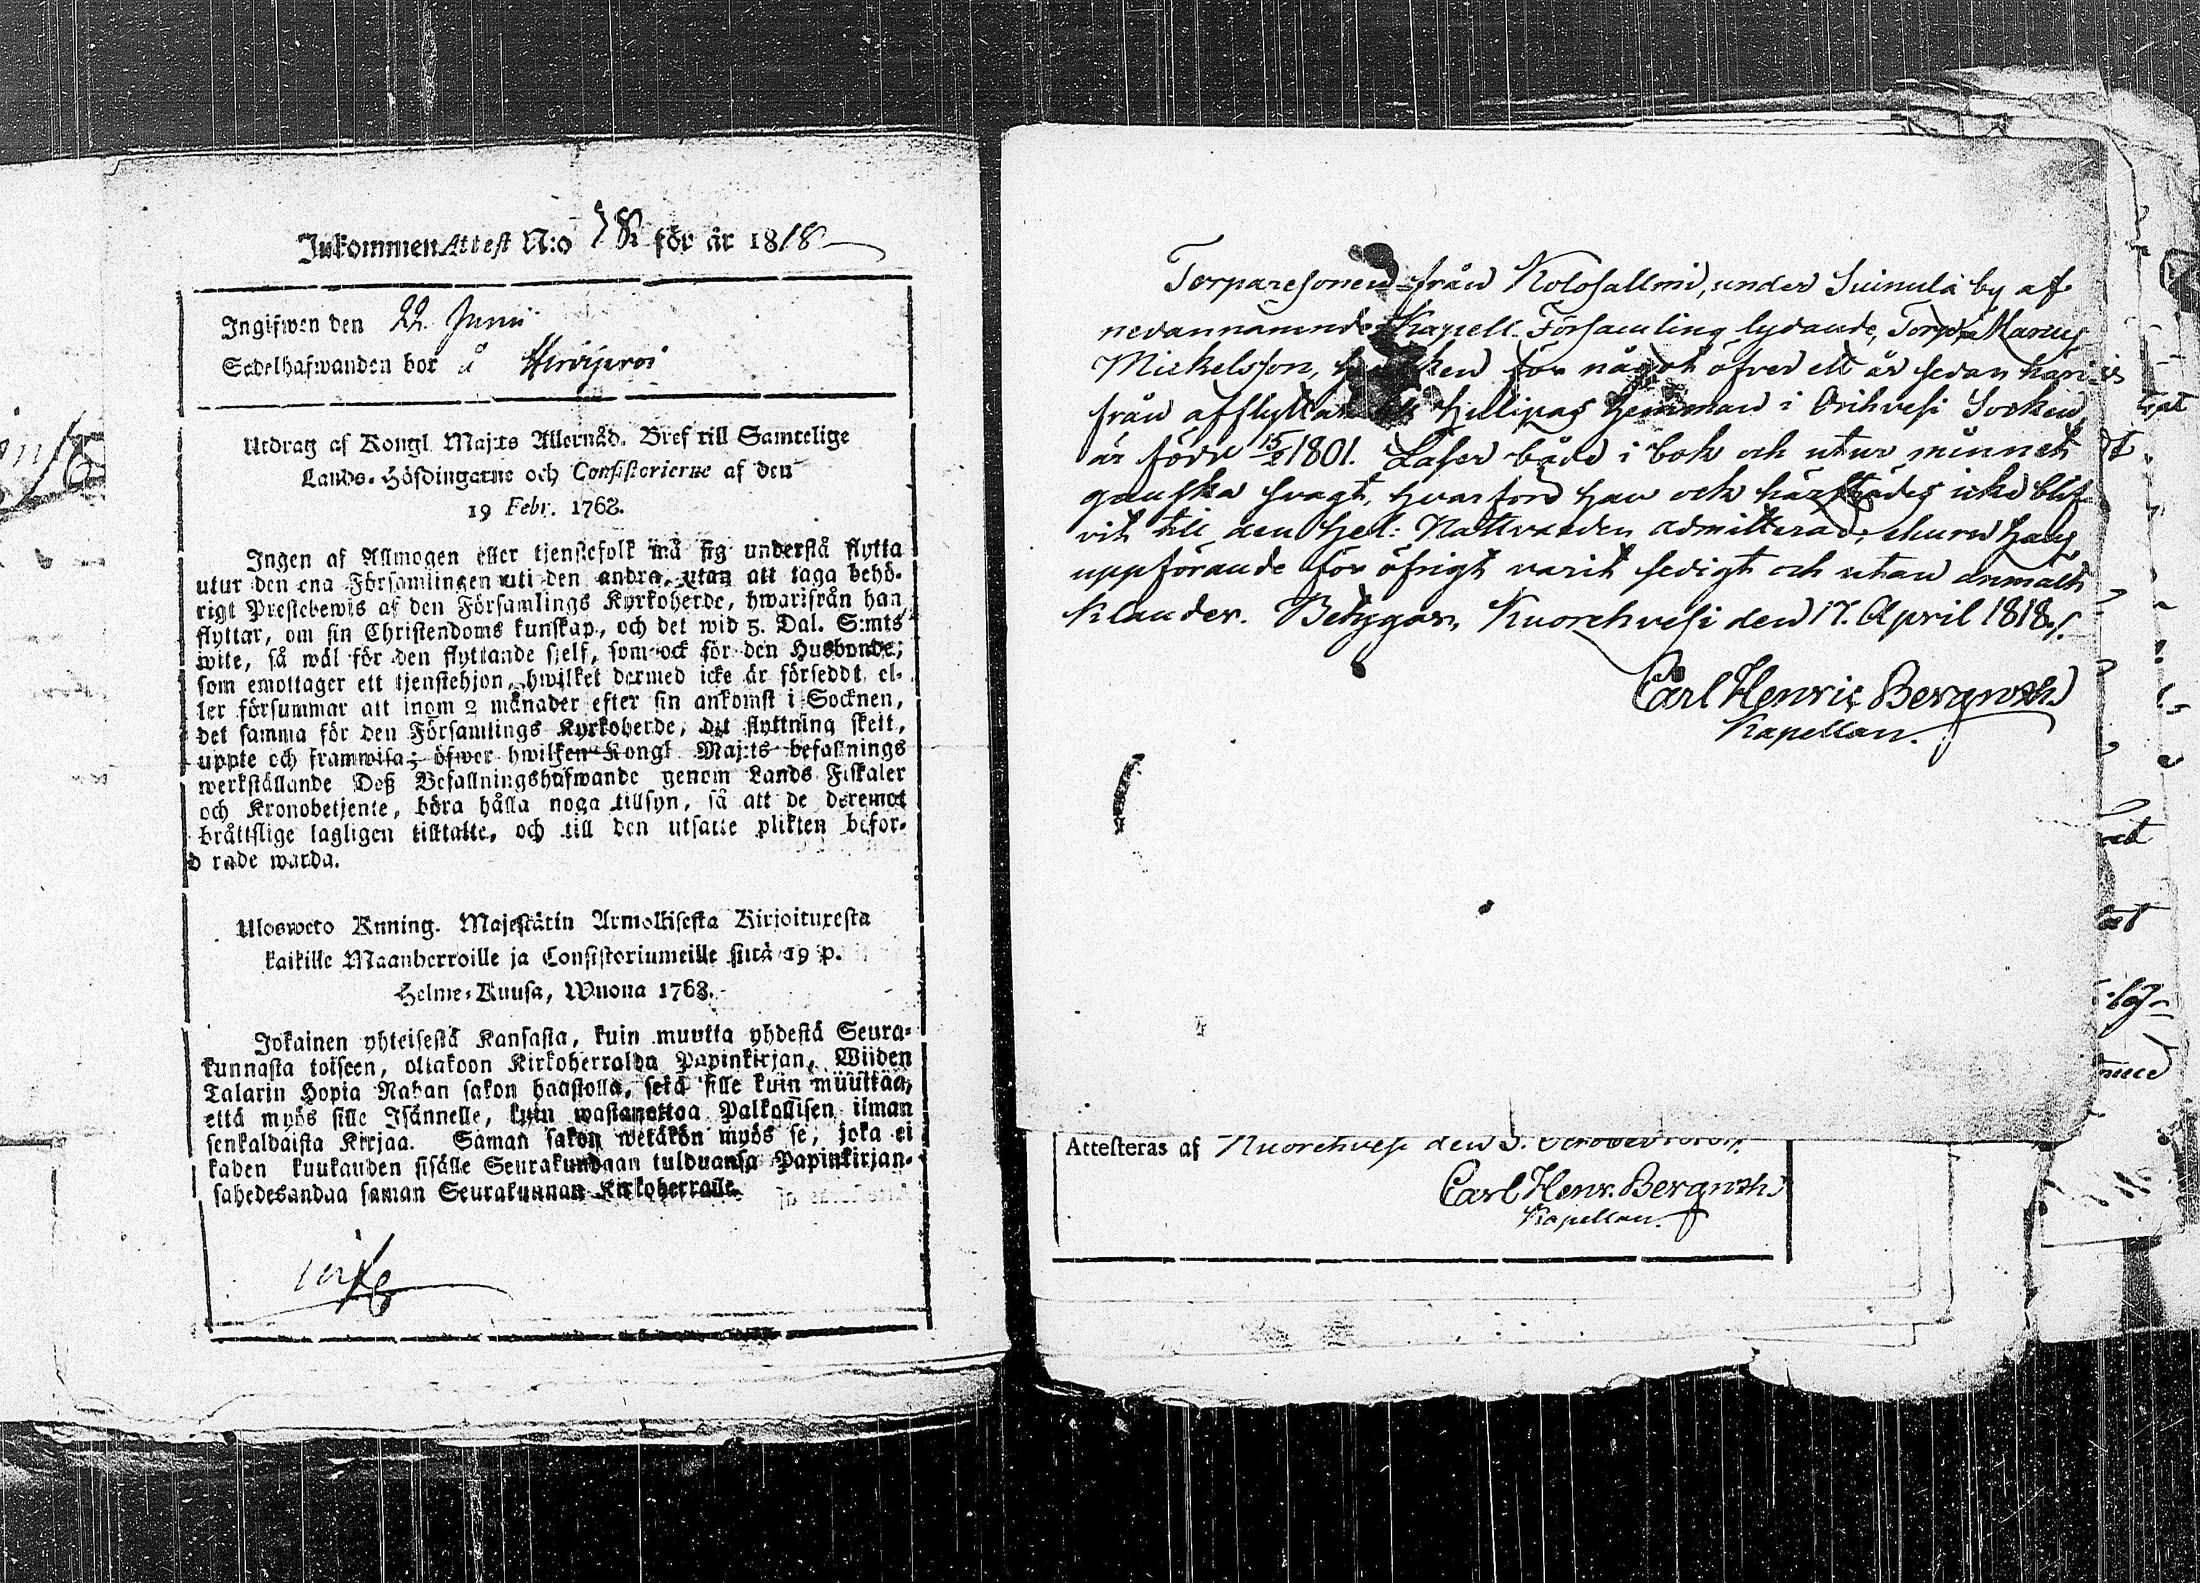 Inkommen Attest N:o 78 för år 1818
Ingifwen den 22 Junii
Sedelhafwanden bor å Hirvijervi
Utdrag af Kongl Maj:ts Allernåd. Bref till Samtelige
Lands-Höfdingarne och Consistorierne af den
19 Febr. 1768.
Ingen af Allmogen eller tjenstefolk må sig understå flytta
utur den ena Församlingen uti den andra, utan att taga behö-
rigt Prestebewis af den Församlings Kyrkoherde, hwarifrån han
flyttar, om sin Christendoms kunskap, och det wid 5. Dal. S:mts
wite, så wäl för den flyttande sjelf, som ock för den Husbonde,
som emottager ett tjenstehjon, hwilket dermed icke är förseddt, el-
ler försummar att inom 2 månader efter sin ankomst i Socknen,
det samma för den Församlings Kyrkoherde, dit flyttning skett,
uppte och framwisa; öfwer hwilken Kongl Maj:ts befallnings
werkställande Deß Befallningshafwande genom Lands Fiskaler
och Kronobetjente, böra hålla noga tillsyn, så att de deremot
bråttslige lagligen tilltalte, och till den utsatte plikten befor-
d rade warda.
Ulosweto Kuning. Majestätin Armollisesta Kirjoituresta
kaikille Maanherroille ja Consistoriumeille siitä 19 p.
Helme-Kuusa, Wuona 1768.
Jokainen yhteisestä Kansasta, kuin muutta yhdestä Seura-
kunnasta toiseen, ottakoon Kirkoherralda Papinkirjan, Wiiden
Talarin Hopia Rahan sakon haastolla, sekä sille kuin müüttää,
että myös sille Isännelle, kuin wastanottaa Palkollisen ilman
senkaldaista Kirjaa. Saman sakon wetäkön myös se, joka ei
kahden kuukauden sisälle Seurakundaan tulduansa Papinkirjan-
sahedesandaa saman Seurakunnan Kirkoherralle.
Torparesonen från Kolosallmi, under Suinula by af
nedannämnde Kapell-Församling lydande, Marcus
Mickelsson, hvilken för något öfver ett år sedan häri-
från afflyttat till Hulipas Hemman i Orihvesi Socken
är född 15/2 1801. Läser både i bok och utur minnet
ganska svagt, hvarföre han ock härstädes icke blif-
vit till den Hel: Nattvarden admitterad, ehuru hans
uppförande för öfrigt varit sedigt och utan anmält
klander. Betygar, Kuorehvesi den 17. April 1818.
Carl Henric Bergroth
Kapellan.
Attesteras af Kuorehvesi den 3. October
Carl Henr. Bergroth
Kapellan.